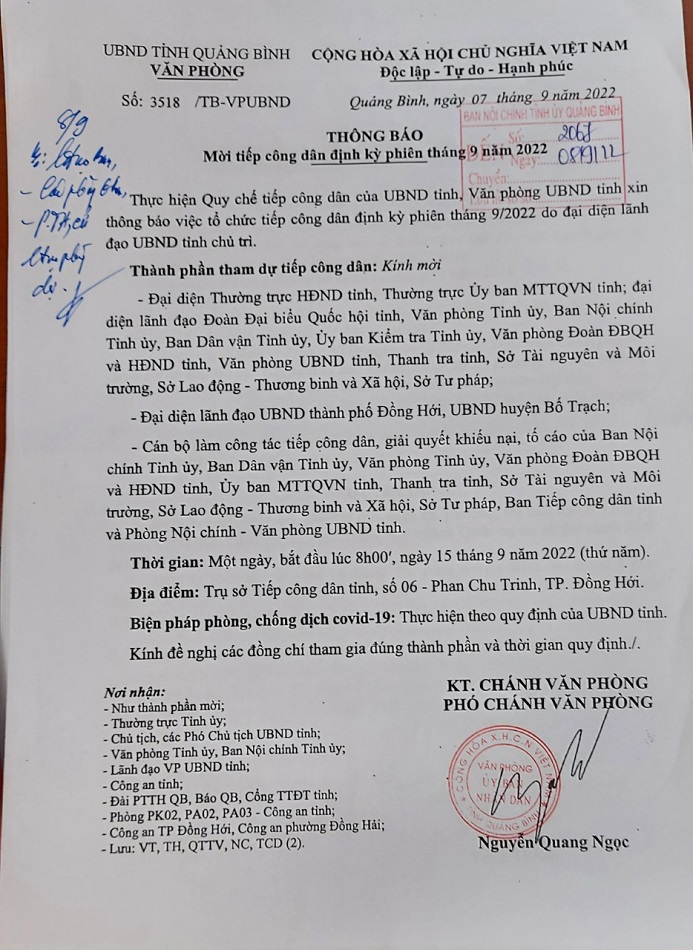 UBND TỈNH QUẢNG BÌNH
VĂN PHÒNG
CỘNG HÒA XÃ HỘI CHỦ NGHĨA VIỆT NAM
Độc lập - Tự do - Hạnh phúc
Số: 3518 /TB-VPUBND
Quảng Bình, ngày 07 tháng 9 năm 2022
BAN NỘI CHÍNH TỈNH ỦY QUẢNG BÌNH
ĐẾN
Số: 2067
Ngày: 08/9/22
Chuyển:
8/9
THÔNG BÁO
Mời tiếp công dân định kỳ phiên tháng 9 năm 2022
Thực hiện Quy chế tiếp công dân của UBND tỉnh, Văn phòng UBND tỉnh xin
thông báo việc tổ chức tiếp công dân định kỳ phiên tháng 9/2022 do đại diện lãnh
đạo UBND tỉnh chủ trì.
Thành phần tham dự tiếp công dân: Kính mời
- Đại diện Thường trực HĐND tỉnh, Thường trực Ủy ban MTTQVN tỉnh; đại
diện lãnh đạo Đoàn Đại biểu Quốc hội tỉnh, Văn phòng Tỉnh ủy, Ban Nội chính
Tỉnh ủy, Ban Dân vận Tỉnh ủy, Ủy ban Kiểm tra Tỉnh ủy, Văn phòng Đoàn ĐBQH
và HĐND tỉnh, Văn phòng UBND tỉnh, Thanh tra tỉnh, Sở Tài nguyên và Môi
trường, Sở Lao động - Thương binh và Xã hội, Sở Tư pháp;
- Đại diện lãnh đạo UBND thành phố Đồng Hới, UBND huyện Bố Trạch;
- Cán bộ làm công tác tiếp công dân, giải quyết khiếu nại, tố cáo của Ban Nội
chính Tỉnh ủy, Ban Dân vận Tỉnh ủy, Văn phòng Tỉnh ủy, Văn phòng Đoàn ĐBQH
và HĐND tỉnh, Ủy ban MTTQVN tỉnh, Thanh tra tỉnh, Sở Tài nguyên và Môi
trường, Sở Lao động - Thương binh và Xã hội, Sở Tư pháp, Ban Tiếp công dân tỉnh
và Phòng Nội chính - Văn phòng UBND tỉnh.
Thời gian: Một ngày, bắt đầu lúc 8h00', ngày 15 tháng 9 năm 2022 (thứ năm).
Địa điểm: Trụ sở Tiếp công dân tỉnh, số 06 - Phan Chu Trinh, TP. Đồng Hới.
Biện pháp phòng, chống dịch covid-19: Thực hiện theo quy định của UBND tỉnh.
Kính đề nghị các đồng chí tham gia đúng thành phần và thời gian quy định./.
Nơi nhận:
- Như thành phần mời;
- Thường trực Tỉnh ủy;
- Chủ tịch, các Phó Chủ tịch UBND tỉnh;
- Văn phòng Tỉnh ủy, Ban Nội chính Tỉnh ủy;
- Lãnh đạo VP UBND tỉnh;
- Công an tỉnh;
- Đài PTTH QB, Báo QB, Cổng TTĐT tỉnh;
- Phòng PK02, PA02, PA03 - Công an tỉnh;
- Công an TP Đồng Hới, Công an phường Đồng Hải;
- Lưu: VT, TH, QTTV, NC, TCD (2).
KT. CHÁNH VĂN PHÒNG
PHÓ CHÁNH VĂN PHÒNG
CỘNG HÒA X.H.C.N VIỆT NAM
VĂN PHÒNG
ỦY BAN
NHÂN DÂN
TỈNH QUẢNG BÌNH
Nguyễn Quang Ngọc